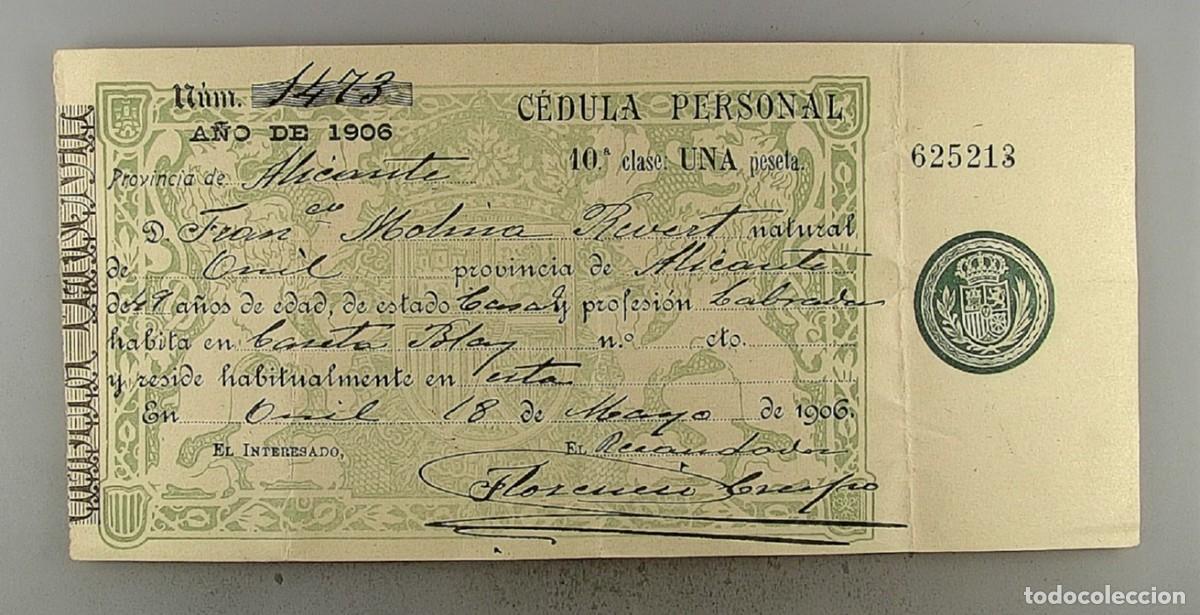 Núm. 1473
AÑO DE 1906
CÉDULA PERSONAL
Provincia de Alicante
10.ª clase: UNA peseta.
625213
D Fran.co Molina Revert natural
de Onil provincia de Alicante
de 49 años de edad, de estado Casado y profesión Labrador
habita en Caseta Blay n.º cto.
y reside habitualmente en esta
En Onil 18 de Mayo de 1906.
EL INTERESADO,
EL Recaudador
Florencio Crespo
todocoleccion